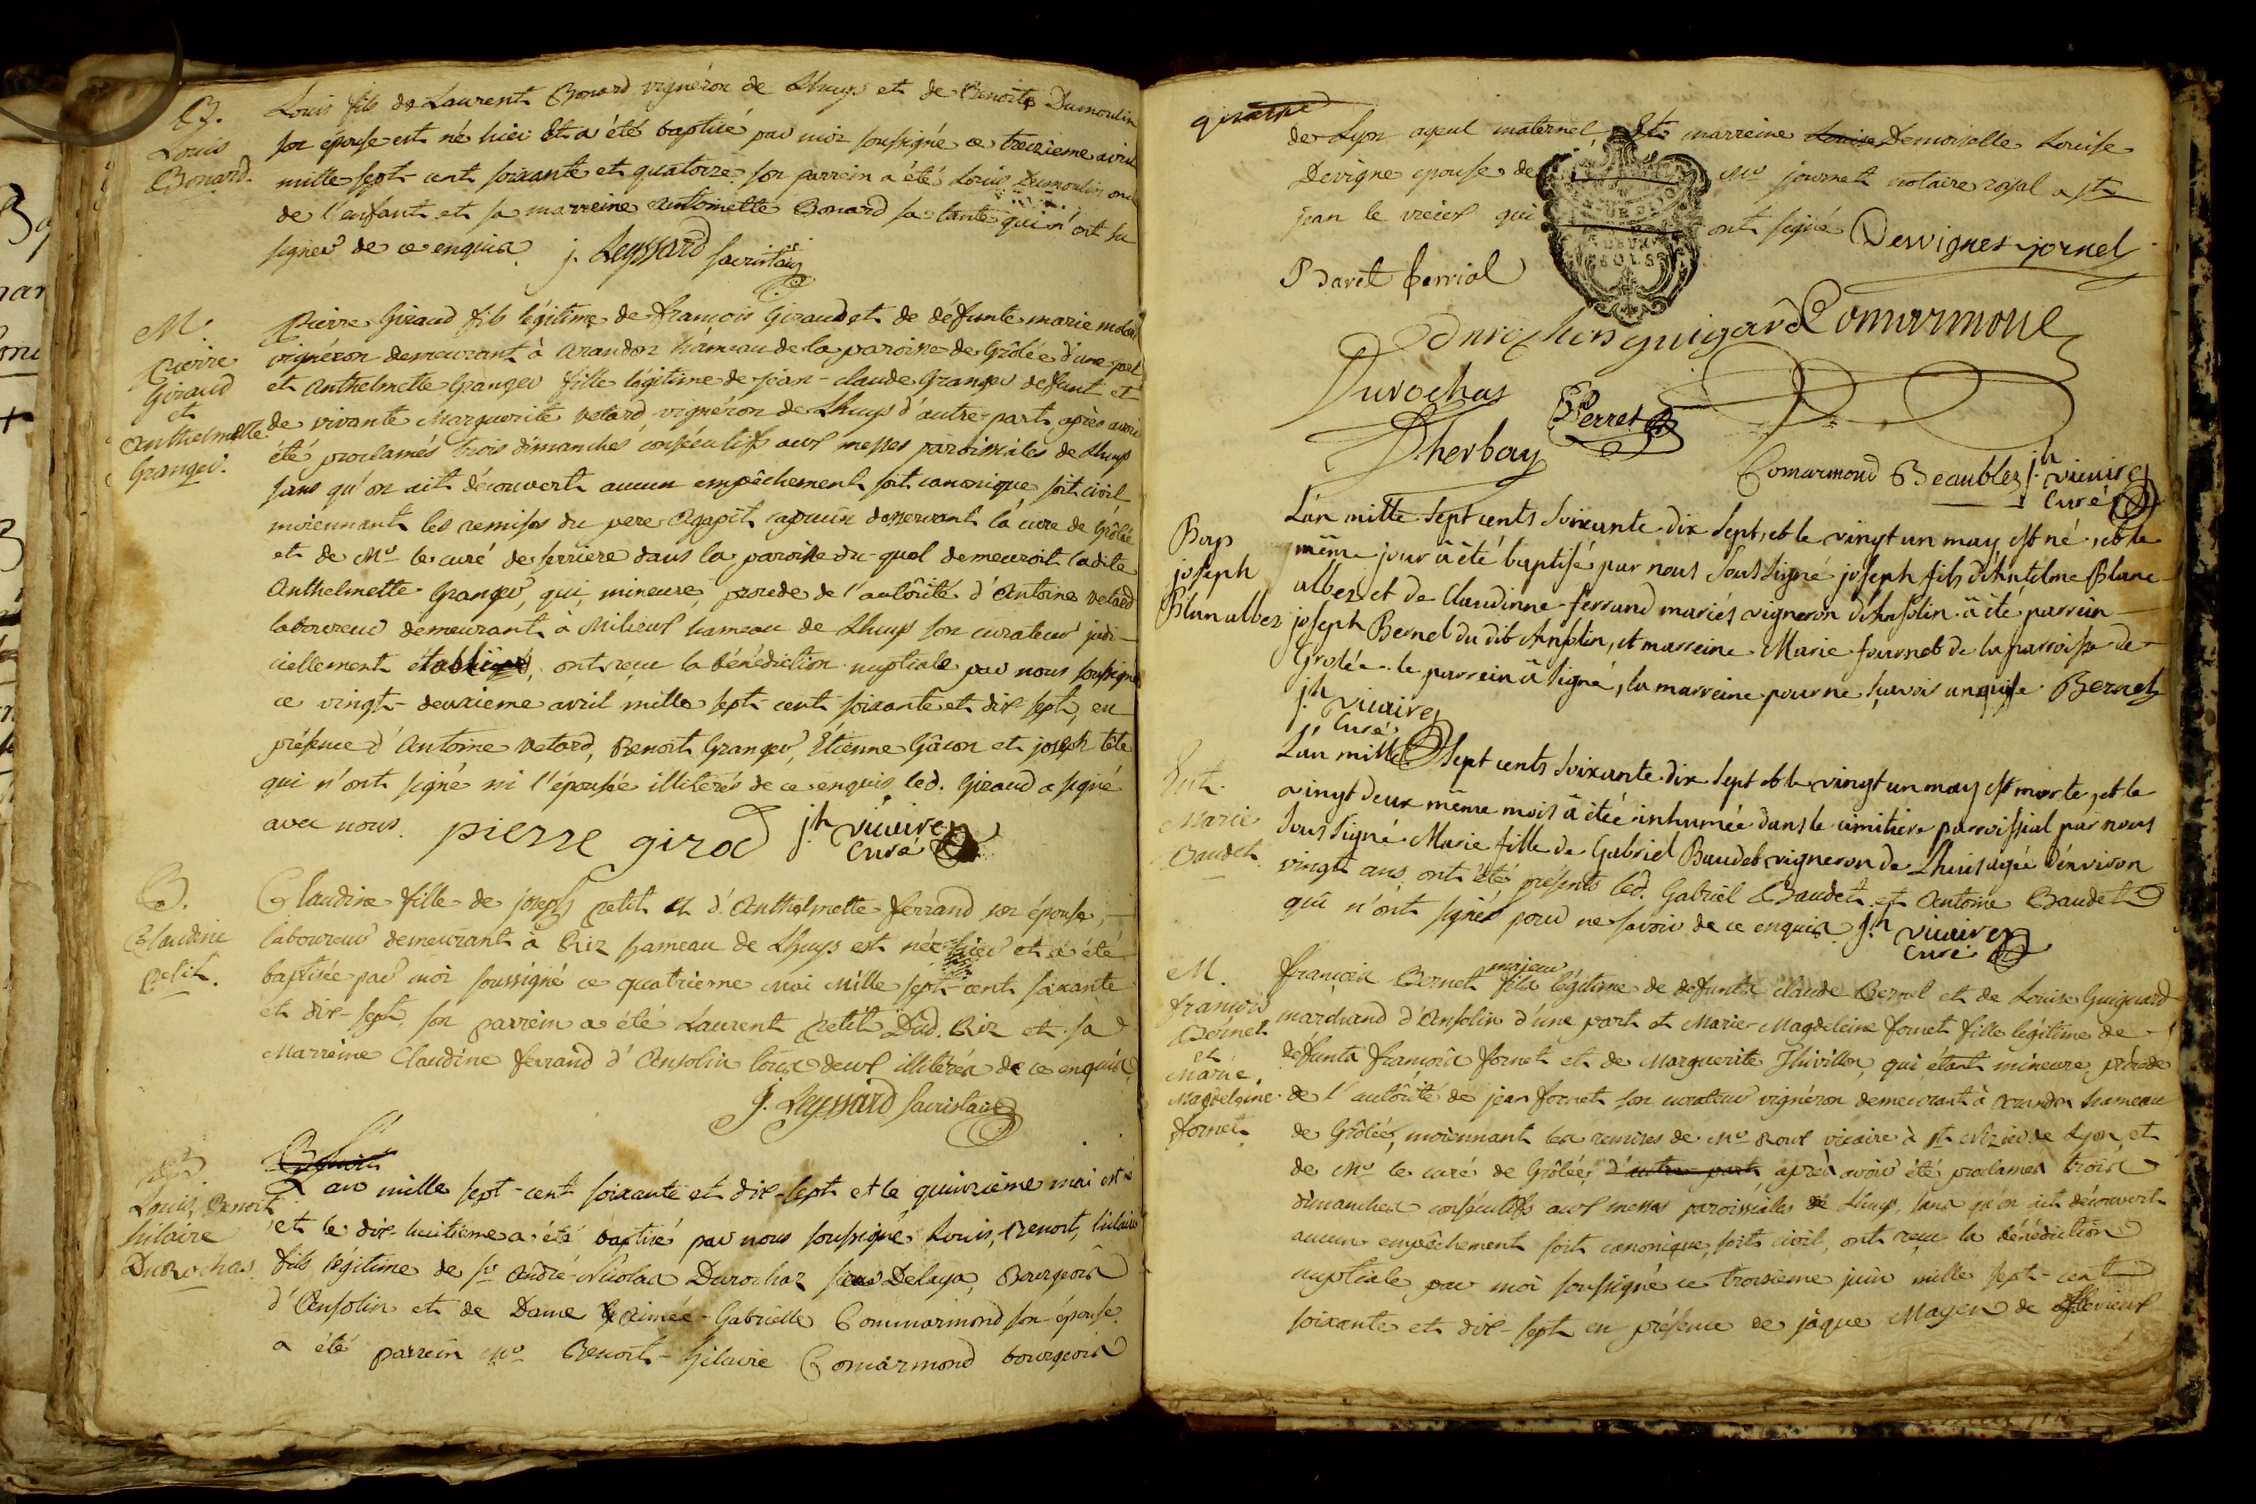 B.
Louis
Bonard.
Louis fils de Laurent Bonard vignéron de Lhuys et de Benoite Dumoulin
son épouse est né hier et a été baptisé par moi soussigné ce treizieme avril
mille sept-cent soixante et quatorze son parrein a été Louis Dumoulin oncle
de l'enfant et sa marreine antoinette Bonard sa tante qui n'ont su
signer de ce enquis j. Leyssard sacristain
M.
Pierre
Giraud
et
Anthelmette
Granger.
Pierre Giraud fils légitime de françois Giraud et de défunte marie
vignéron demeurant à arandon hameau de la paroisse de Grôlée d'une part
et Anthelmette Granger fille légitime de jean-claude Granger défunt et
de vivante Marguerite vetard vignéron de Lhuys d'autre-part, après avoir
été proclamés trois dimanches consécutifs aux messes paroissiales de Lhuys
sans qu'on ait découvert aucun empêchement soit canonique soit civil
moiennant les remises du pere Agapit capucin desservant la cure de Grôlée
et de Mr le curé de serriere dans la paroisse du-quel demeuroit ladite
Anthelmette Granger, qui, mineure, procede de l'autôrité d'Antoine vetard
laboureur demeurant à Milieux hameau de Lhuys son curateur judi-
ciellement établi, ont reçu la bénédiction nuptiale par nous soussigné
ce vingt-deuxieme avril mille sept-cent soixante et dix sept, en
présence d'Antoine vetard, Benoit Granger, Etienne Gâcon et joseph tête
qui n'ont signé ni l'épousée illitérés de ce enquis led. Giraud a signé
avec nous. pierre girod jh vicaire
Curé
B.
Claudine
Petit.
Claudine fille de joseph Petit et d'Anthelmette ferrand son épouse,
laboureur demeurant à Riz hameau de Lhuys est née hier et a été
baptisée par moi soussigné ce quatrieme Mai Mille sept-cent soixante
et dix-sept, son parrein a été Laurent Petit Dud. Riz et sa
Marreine Claudine ferrand d'Ansolin tous deux illitérés de ce enquis
J. Leyssard sacristain
Louis, Benoit
hilaire
DuRochas.
L'an mille sept-cent soixante et dix-sept et le quinzième mai est né
et le dix-huitième a été baptisé par nous soussigné Louis, Benoit, hilaire
fils légitime de sr André-Nicolas Durochas sieur Delaya, Bourgeois
d'Ansolin et de Dame Aimée-Gabrielle Commarmond son épouse.
a été parrein Mr Benoit-hilaire Comarmond bourgeois
de Lyon ayeul maternel, Et marreine Louise Demoiselle Louise
Devigne epouse de Mr journet notaire royal a st
jean le vieux qui ont signé Dervignes jornel
DEUX
SOLS
Baret ferriol
Durochas guigard Comarmont
Durochas
Perret
Dherbay
Comarmond Beaublez jh vicaire
Curé
Bap
joseph
Blanalbez
L'an mille sept cents soixante dix sept, et le vingt un may est né, et le
même jour à été baptisé par nous soussigné joseph fils d'Antelme Blanc
albez et de Claudinne ferrand mariés vigneron d'Ansolin à été parrein
joseph Bernel du dit Ansolin, et marreine Marie fournet de la parroisse de
Grolée. le parrein à signé, la marreine pour ne sçavoir enquise. Bernet
jh vicaire
Curé
Ent.
Marie
Baudet.
L'an mille sept cents soixante dix sept et le vingt un may est morte, et le
vingt deux même mois à étée inhumée dans le cimitiere parroissial par nous
soussigné Marie fille de Gabriel Baudet vigneron de Lhuis agée d'environ
vingt ans ont été présents led. Gabriel Baudet et Antoine Baudet
qui n'ont signés pour ne savoir de ce enquis jh vicaire
Curé
M.
francois
Bernet
et
Marie
Magdeleine
fornet
françois Bernet majeur fils légitime de defunts claude Bernet et de Louise Guiguard
marchand d'Ansolin d'une part et Marie Magdeleine fornet fille légitime de
defunts françois fornet et de Marguerite Thivillon, qui étant mineure, procede
de l'autôrité de jean fornet son curateur vignéron demeurant à arandon hameau
de Grôlée, moiennant les remises de Mr Roux vicaire à st Nizier de Lyon, et
de Mr le curé de Grôlée, d'autre part, après avoir été proclamés trois
dimanches consécutifs aux messes paroissiales de Lhuys, sans qu'on ait découvert
aucun empêchement soit canonique, soit civil, ont reçu la bénédiction
nuptiale par moi soussigné ce troisieme juin mille sept-cent
soixante et dix-sept en présence de jâque Mayen de flevieux